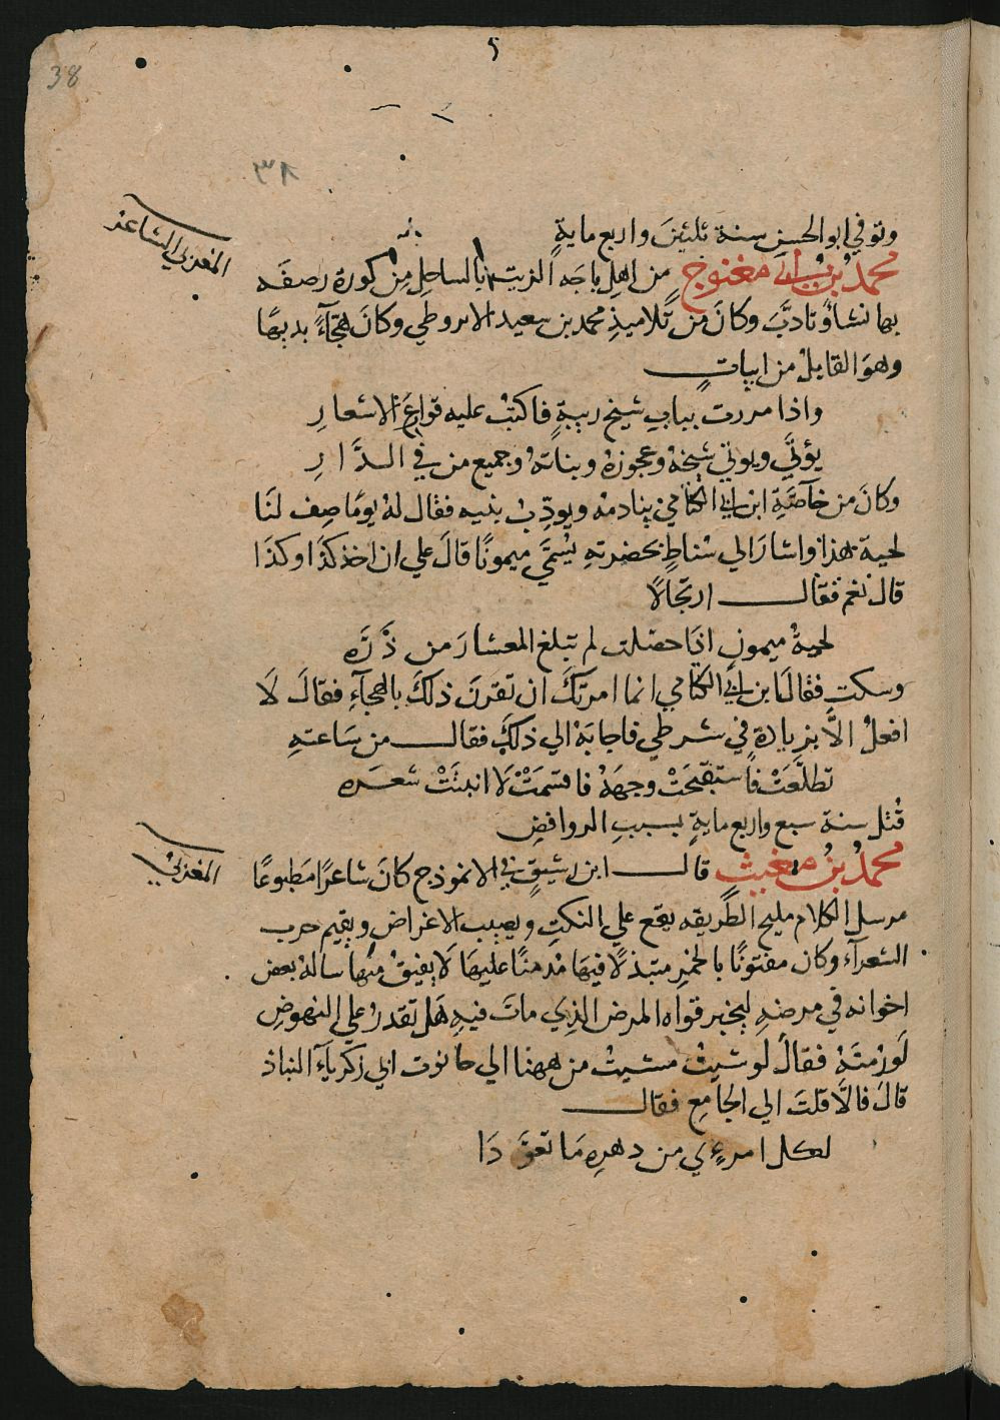 38
٣٨
وتوفي ابو الحسن سنة ثلثين واربع ماية
المغربي الشاعر
محمد بن مغنوج من اهل باجه الزيت بالساحل من كورة رصفه
بها نشأ وتادبَ وكانَ من تلاميذِ محمد بن سعيد الابروطي وكانَ هجّآءً بديهًا
وهوَ القايلُ من ابياتٍ
واذا مررت ببابِ شيخ ريبةٍ فاكتبْ عليه قوارعَ الاشعارِ
يؤتَي ويوتي شيخهُ وعجوزهُ وبناتهُ وجميع من في الدَّارِ
وكانَ من خآصَّةِ ابن ابي الكتامي ينادمهُ ويودِّبُ بنيه فقال لهُ يومًا صِف لنَا
لحية هذا واشارَ الي شناطٍ بحضرتهِ يُسَمَّي ميمونًا قالَ علي ان اخذ كذَا وكذَا
قال نعم فقال ارتجالًا
لحيةُ ميمونٍ اذَا حصلت لم تبلغ المعشارَ من ذَرَّه
وسكت فقال ابن ابي الكتامي انما امرتكَ ان تقرنَ ذلكَ بالهجآءِ فقالَ لَا
افعلُ الَّا بزيادةٍ في شرطي فاجابَهُ الي ذلكَ فقال من سَاعتهِ
تطلَّعَتْ فاستقبحَتْ وجهَهُ فاقسَمَتْ لَا انبتَتْ شعَره
قُتل سنة سبع واربع مايةٍ بسببِ الروافضِ
المغربي
محمدُ بنُ مغيث قال ابن رشيقٍ في الانموذج كانَ شاعرًا مَطبوعًا
مرسل الكلام مليح الطَّريقه يقع علي النكتِ ويصيب الاغراض ويقيم حرب
الشعرآء وكان مفتونًا بالخمرِ متبذلًا فيهَا مُدمنًا عليهَا لَا يفيقُ منها سالهُ بعض
اخوانه في مرضهِ ليخبر قواه المرض الذِي ماتَ فيهِ هَل تقدرُ علي النهوضِ
لَو رُمتَهُ فقالَ لو شيتُ مشيتُ من ههنا الي حانوت ابي زكريآءَ النباذ
قالَ فالَّا قلتَ الي الجامِع فقال
لكل امرءٍي من دهرِه مَا تعوَّدَا